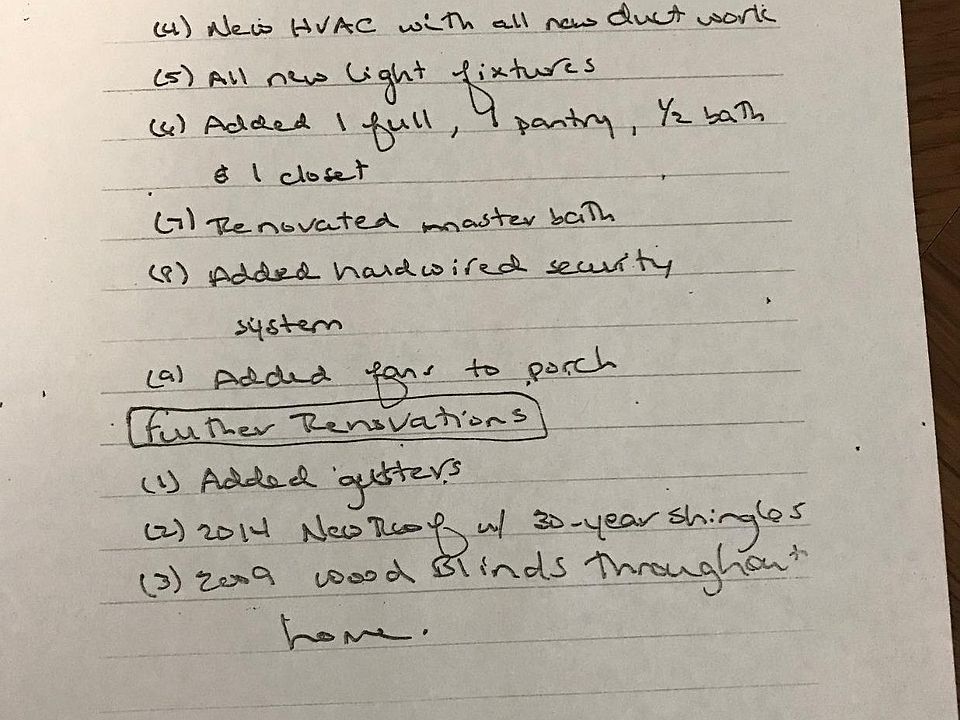 (4) New HVAC with all new duct work
(5) All new light fixtures
(6) Added 1 full, 1 pantry, 1/2 bath
& 1 closet
(7) Renovated master bath
(8) Added hardwired security
system
(9) Added fans to porch
Further Renovations
(1) Added gutters
(2) 2014 New Roof w/ 30-year shingles
(3) 2009 wood Blinds Throughout
home.